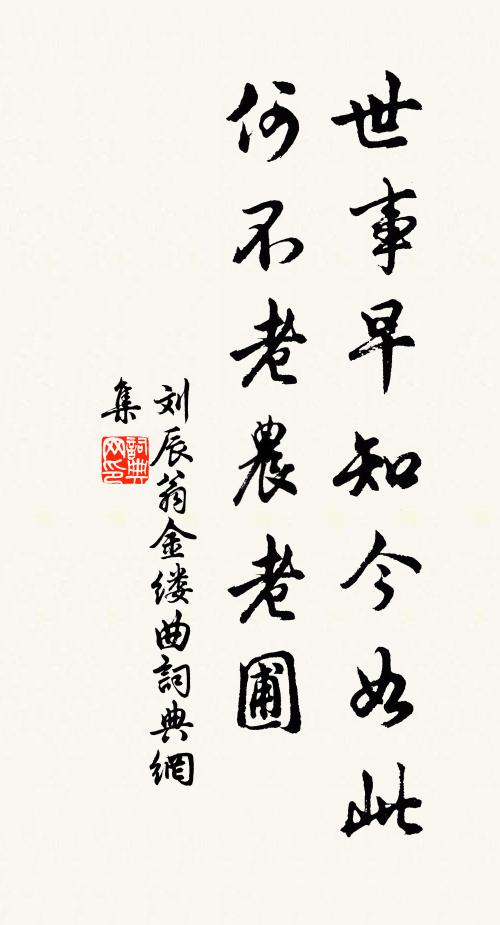 世事早知今如此
何不老農老圃
刘辰翁金缕曲詞典網
集
詞典网印